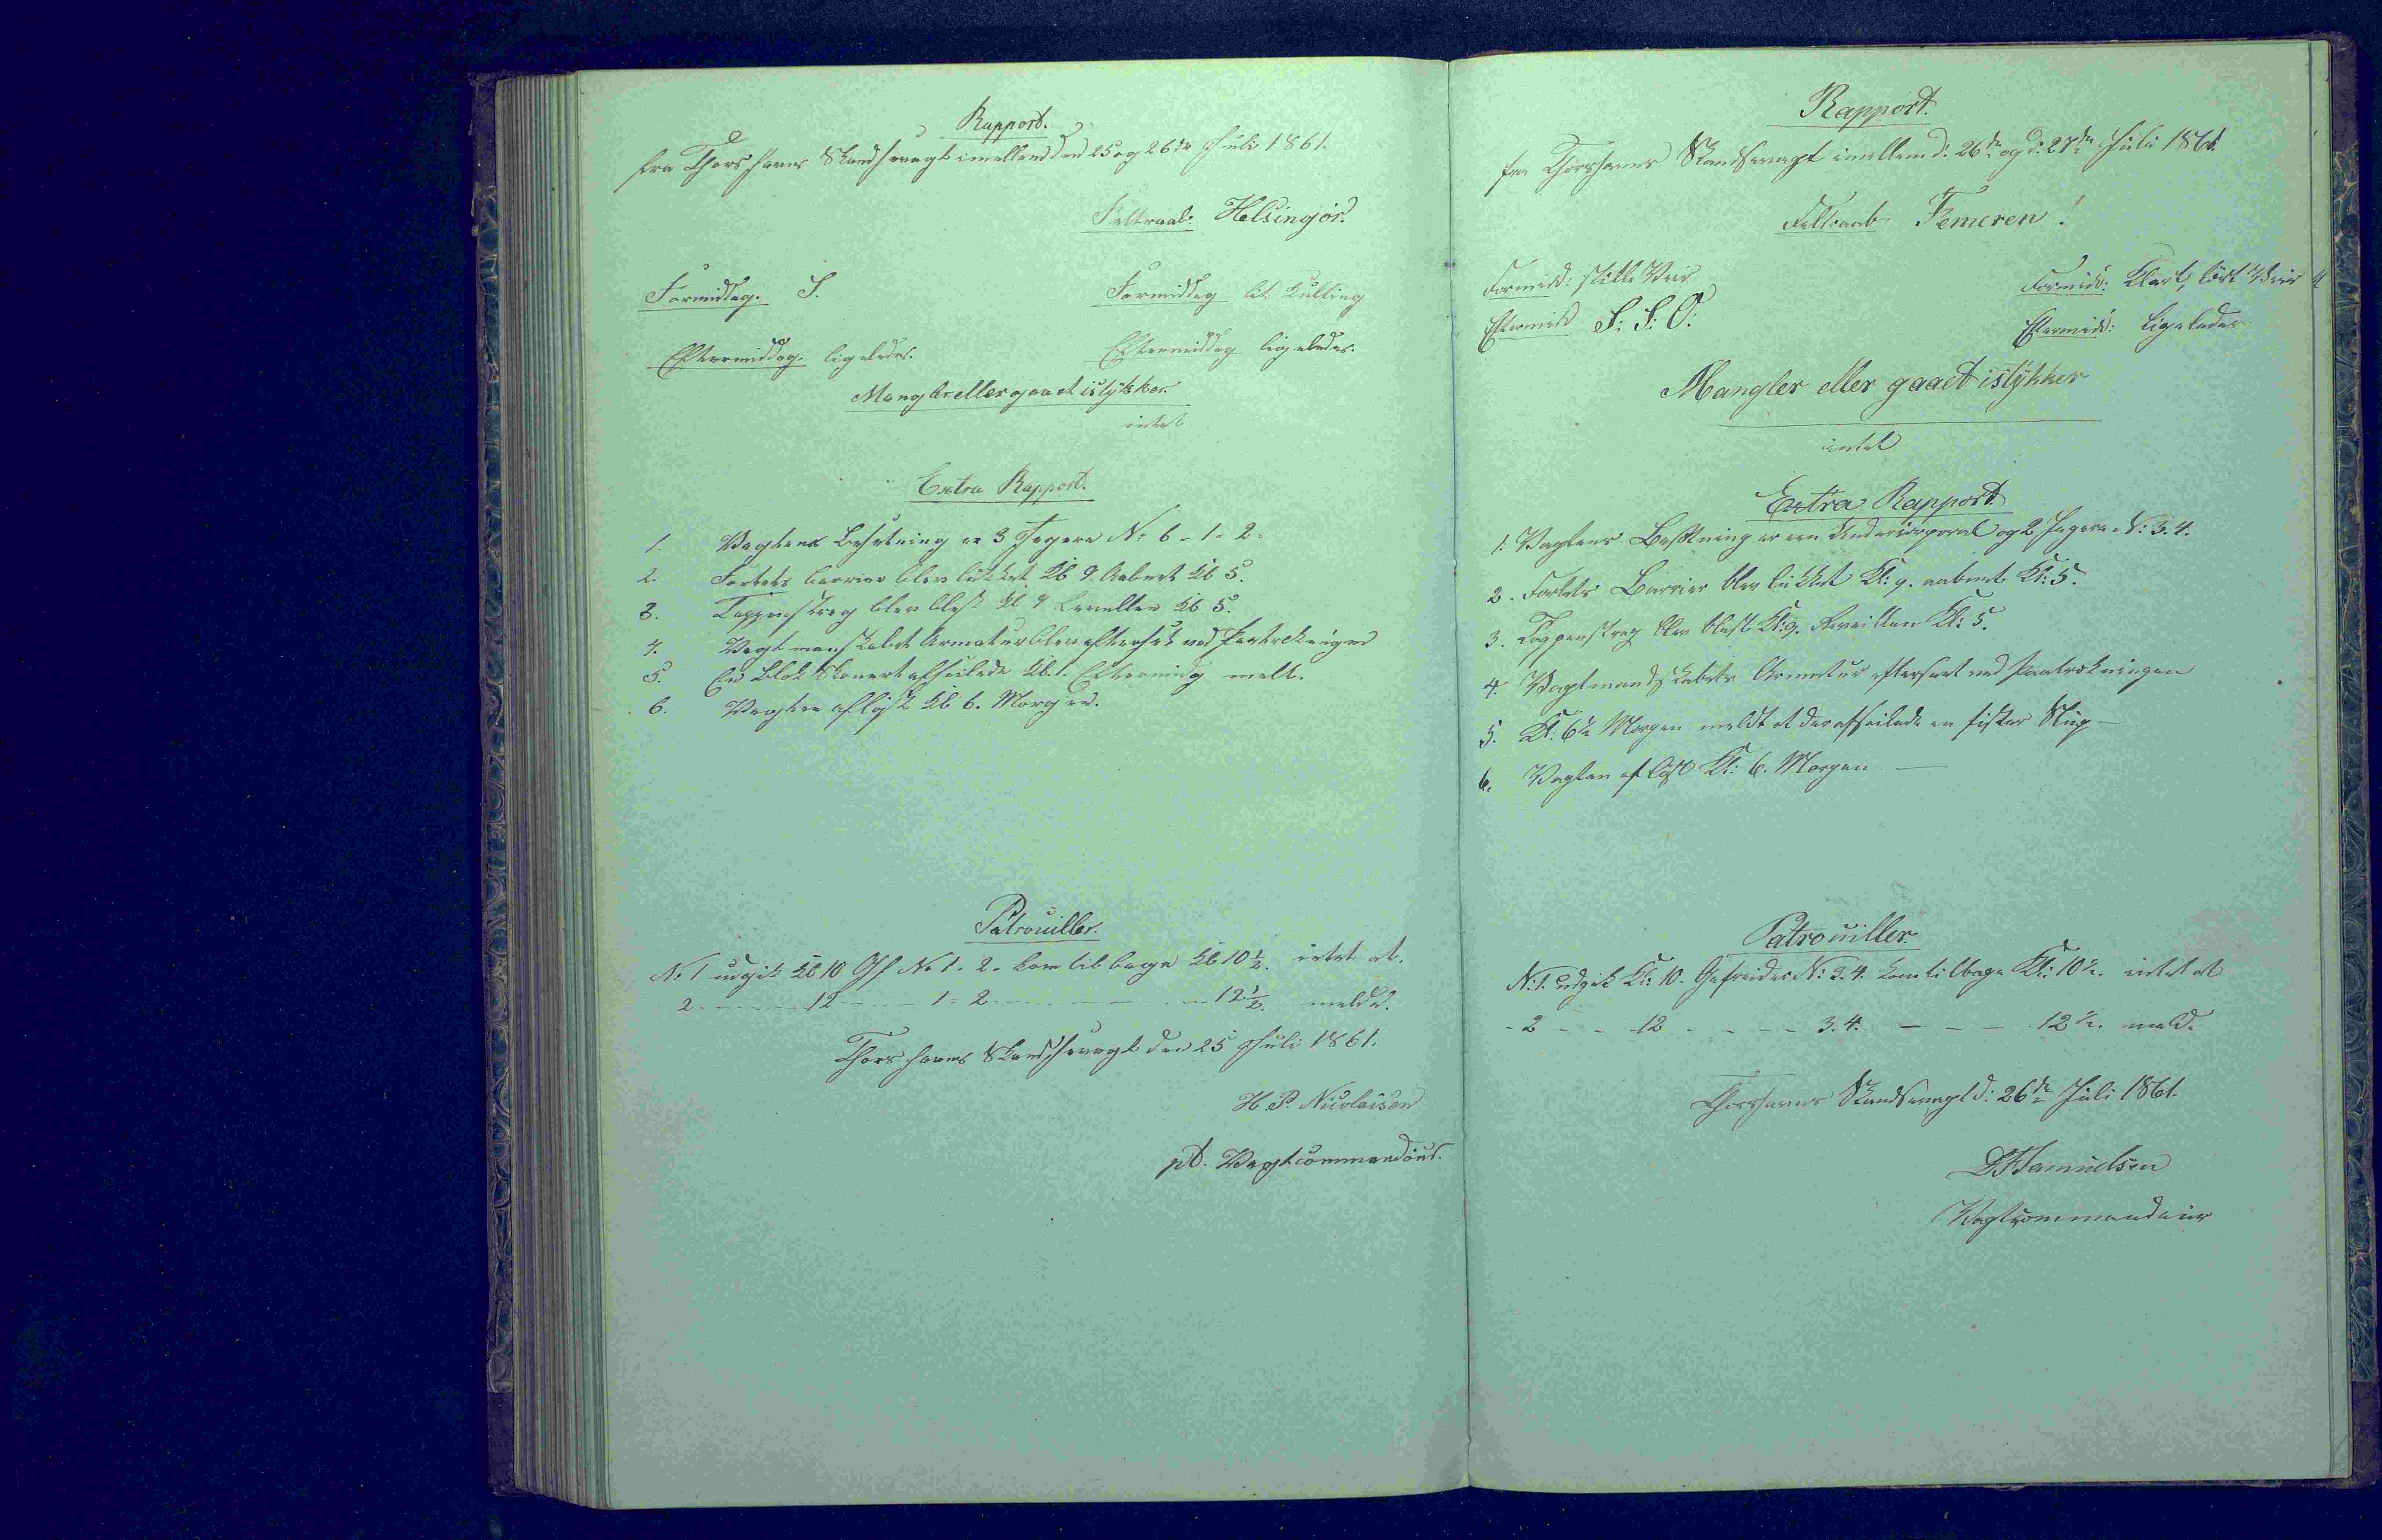 Rapport.
fra Thorshavns Skandsevagt imellem den 25 og 26de Juli 1861.
Feltraab: Helsingør.
Formiddag. S.
Formiddag lit Kulling
Eftermiddag. ligeledes.
Eftermiddag ligeledes.
Mangler eller gaaet istykker.
intet
Extra Rapport.
1. Vagtens Besetning er 3 Jegere No 6 - 1 - 2 -
2. Fortets Barrier blev lukket Kl 9. Aabnet Kl 5.
3. Tappenstreg blev blest Kl 9 Revellen Kl 5.
4. Vagtmanskabets Armatur blev efterset ved
5. En Slok afseilede Kl. 1. Eftermidg meldt.
6. Vagten afløst Kl 6. Morgen.
Patrouiller.
No 1 udgik Kl 10 Gf No 1. 2. kom tilbage Kl 10 1/2. intet at.
2 - - - 12 - - - 1 - 2 - - - 12 1/2. melde.
Thorshavns Skandsevagt den 25 Juli 1861.
H. P. Nicolaisen
pt. Vagtcommandeur.
Rapport.
fra Thorshavns Skandsevagt imellem d: 26de og d: 27de Juli 1861.
Feltraab Femeren!
Formidd: stille Veir
Formidd: Klart, tört Veir
Eftermidd S: S: O:
Eftermidd: ligeledes
Mangler eller gaaet istykker
intet
Extra Rapport
1. Vagtens Besetning er een Undercorporal og 2 Jegere N: 3. 4.
2. Fortets Barrier blev lukket Kl: 9. aabnet Kl: 5.
3. Tappenstreg blev blest Kl: 9. Reveillen Kl: 5.
4. Vagtmandskabets Armatur efterseet ved Paatrekningen
5. Kl: 6 1/2 Morgen meldt at der afseilede en fisker Slup -
6. Vagten aflöst Kl: 6. Morgen -
Patrouiller.
N: 1. udgik Kl: 10. Gefreider N: 3. 4. kom tilbage Kl: 10 1/2. intet at
- 2 - - 12 - - - - 3. 4. - - - 12 1/2. meld.
Thorshavns Skandsevagt d: 26de Juli 1861.
Samuelsen
Vagtcommandeur